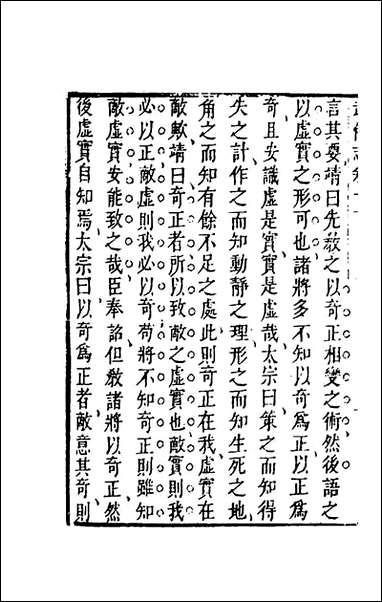 言其要靖曰先教之以奇正相變之術然後語之
以虛實之形可也諸將多不知以奇爲正以正爲
奇且安識虛是實實是虛哉太宗曰策之而知得
失之計作之而知動靜之理形之而知生死之地
角之而知有餘不足之處此則奇正在我虛實在
敵歟靖曰奇正者所以致敵之虛實也敵實則我
必以正敵虛則我必以奇苟將不知奇正則雖知
敵虛實安能致之哉臣奉詔但教諸將以奇正然
後虛實自知焉太宗曰以奇爲正者敵意其奇則